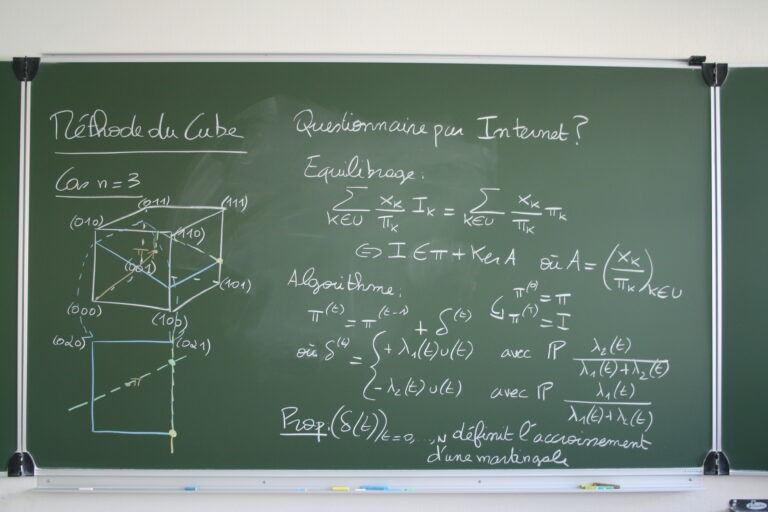 Méthode du Cube
Cas n = 3
(011) (111)
(010) (110)
π
(001)
(101)
(000)
(100)
(020) (021)
π
Questionnaire par Internet ?
Equilibrage :
∑_{k∈U} x_k/π_k I_k = ∑_{k∈U} x_k/π_k π_k
⇔ I ∈ π + Ker A où A = (x_k/π_k)_{k∈U}
Algorithme :
π^(0) = π
π^(T) = I
π^(t) = π^(t-1) + δ^(t)
où δ^(t) = { + λ₁(t) υ(t) avec ℙ λ₂(t)/(λ₁(t)+λ₂(t))
− λ₂(t) υ(t) avec ℙ λ₁(t)/(λ₁(t)+λ₂(t))
Prop : (δ(t))_{t=0,...,N} définit l'accroissement
d'une martingale